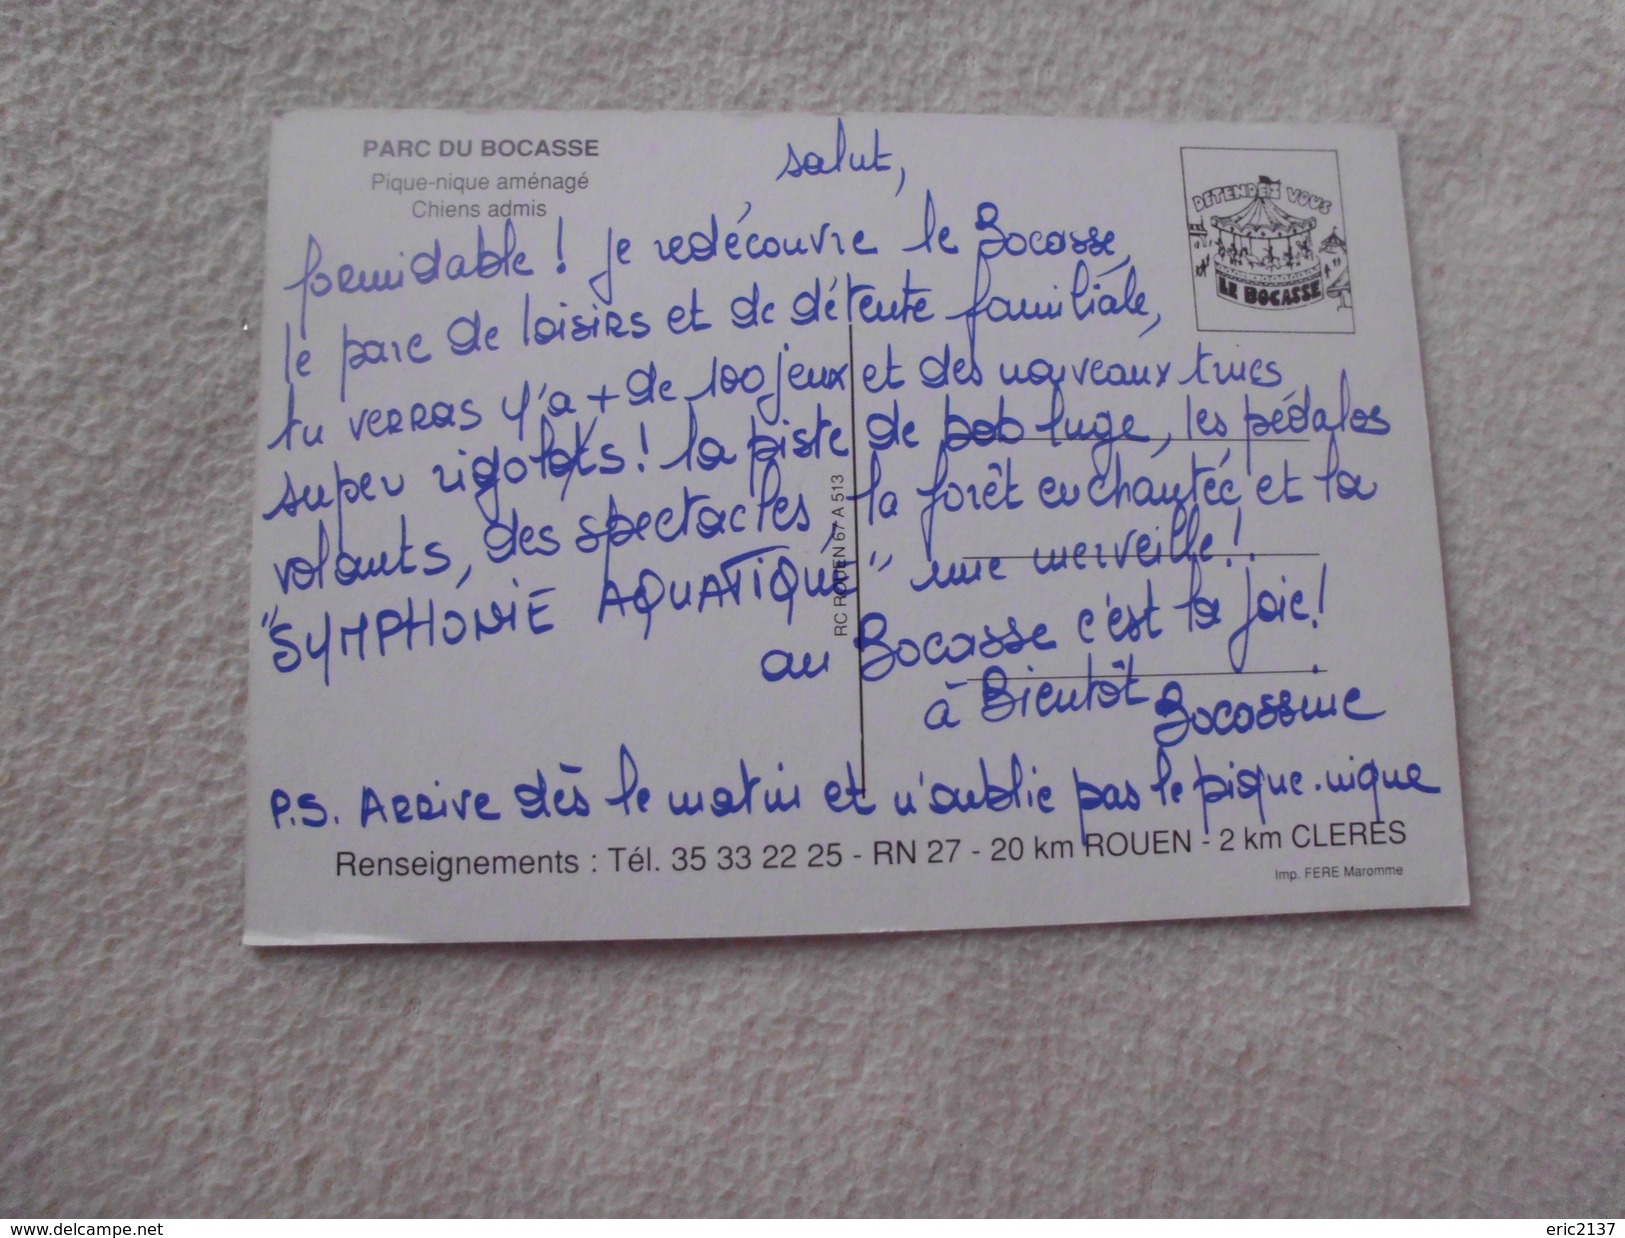 PARC DU BOCASSE
Pique-nique aménagé
Chiens admis
DETENDEZ VOUS
LE BOCASSE
salut,
formidable ! je redécouvre le Bocasse,
le parc de loisirs et de détente familiale,
tu verras y'a + de 100 jeux et des nouveaux trucs
super rigolots ! la piste de bob luge, les pédalos
volants, des spectacles, la forêt enchantée et la
"SYMPHONIE AQUATIQUE" une merveille !
au Bocasse c'est la joie !
à Bientôt Bocassine
P.S. Arrive dès le matin et n'oublie pas le pique-nique
RC ROUEN 67 A 513
Renseignements : Tél. 35 33 22 25 - RN 27 - 20 km ROUEN - 2 km CLERES
Imp. FERE Maromme
www.delcampe.net
eric2137